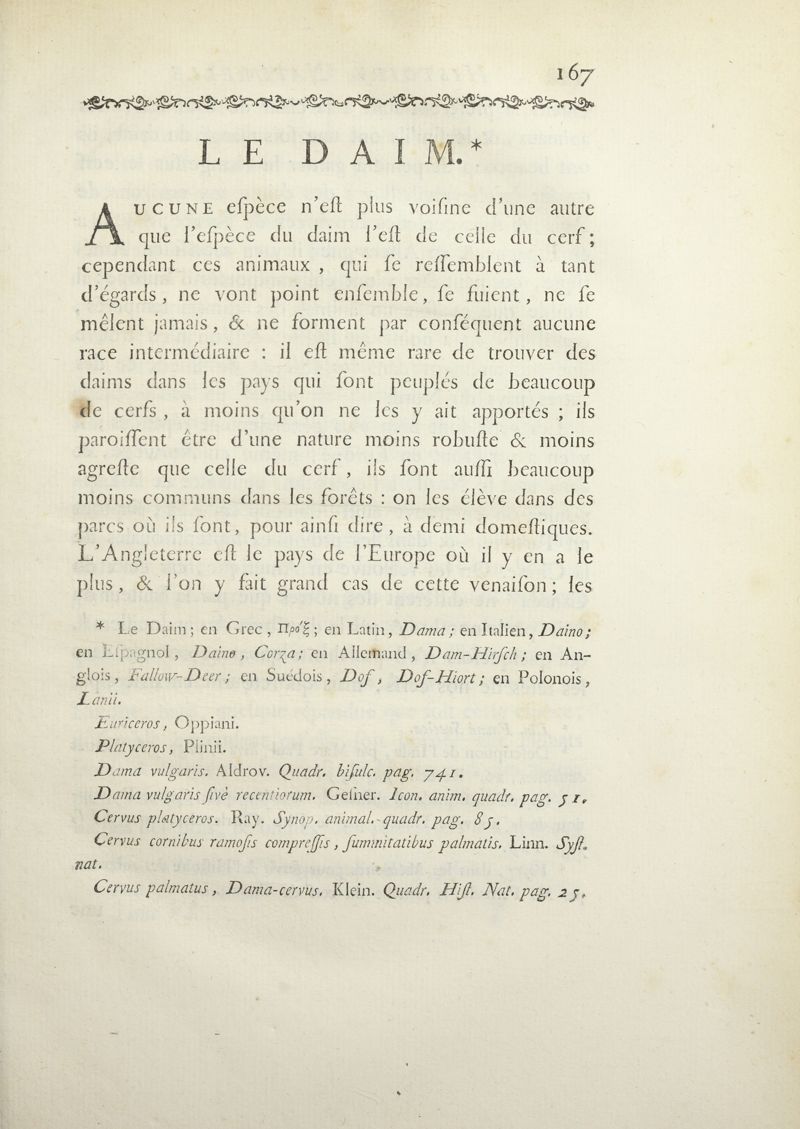 167
LE DAIM.*
AUCUNE eſpèce n'eſt plus voiſine d'une autre
que l'eſpèce du daim l'eſt de celle du cerf;
cependant ces animaux, qui ſe reſſemblent à tant
d'égards, ne vont point enſemble, ſe fuient, ne ſe
mêlent jamais, & ne forment par conſéquent aucune
race intermédiaire : il eſt même rare de trouver des
daims dans les pays qui ſont peuplés de beaucoup
de cerfs, à moins qu'on ne les y ait apportés ; ils
paroiſſent être d'une nature moins robuſte & moins
agreſte que celle du cerf, ils ſont auſſi beaucoup
moins communs dans les forêts : on les élève dans des
parcs où ils ſont, pour ainſi dire, à demi domeſtiques.
L'Angleterre eſt le pays de l'Europe où il y en a le
plus, & l'on y fait grand cas de cette venaiſon; les
* Le Daim; en Grec, Προ´ξ; en Latin, Dama; en Italien, Daino;
en Eſpagnol, Daino, Corza; en Allemand, Dam-Hirſch; en An-
glois, Fallow-Deer; en Suédois, Dof, Dof-Hiort; en Polonois,
Lanii.
Euriceros, Oppiani.
Platyceros, Plinii.
Dama vulgaris. Aldrov. Quadr. biſulc. pag. 741.
Dama vulgaris ſivè recentiorum. Geſner. Icon. anim. quadr. pag. 51.
Cervus platyceros. Ray. Synop. animal. quadr. pag. 85.
Cervus cornibus ramoſis compreſſis, ſummitatibus palmatis. Linn. Syſt.
nat.
Cervus palmatus, Dama-cervus. Klein. Quadr. Hiſt. Nat. pag. 25.